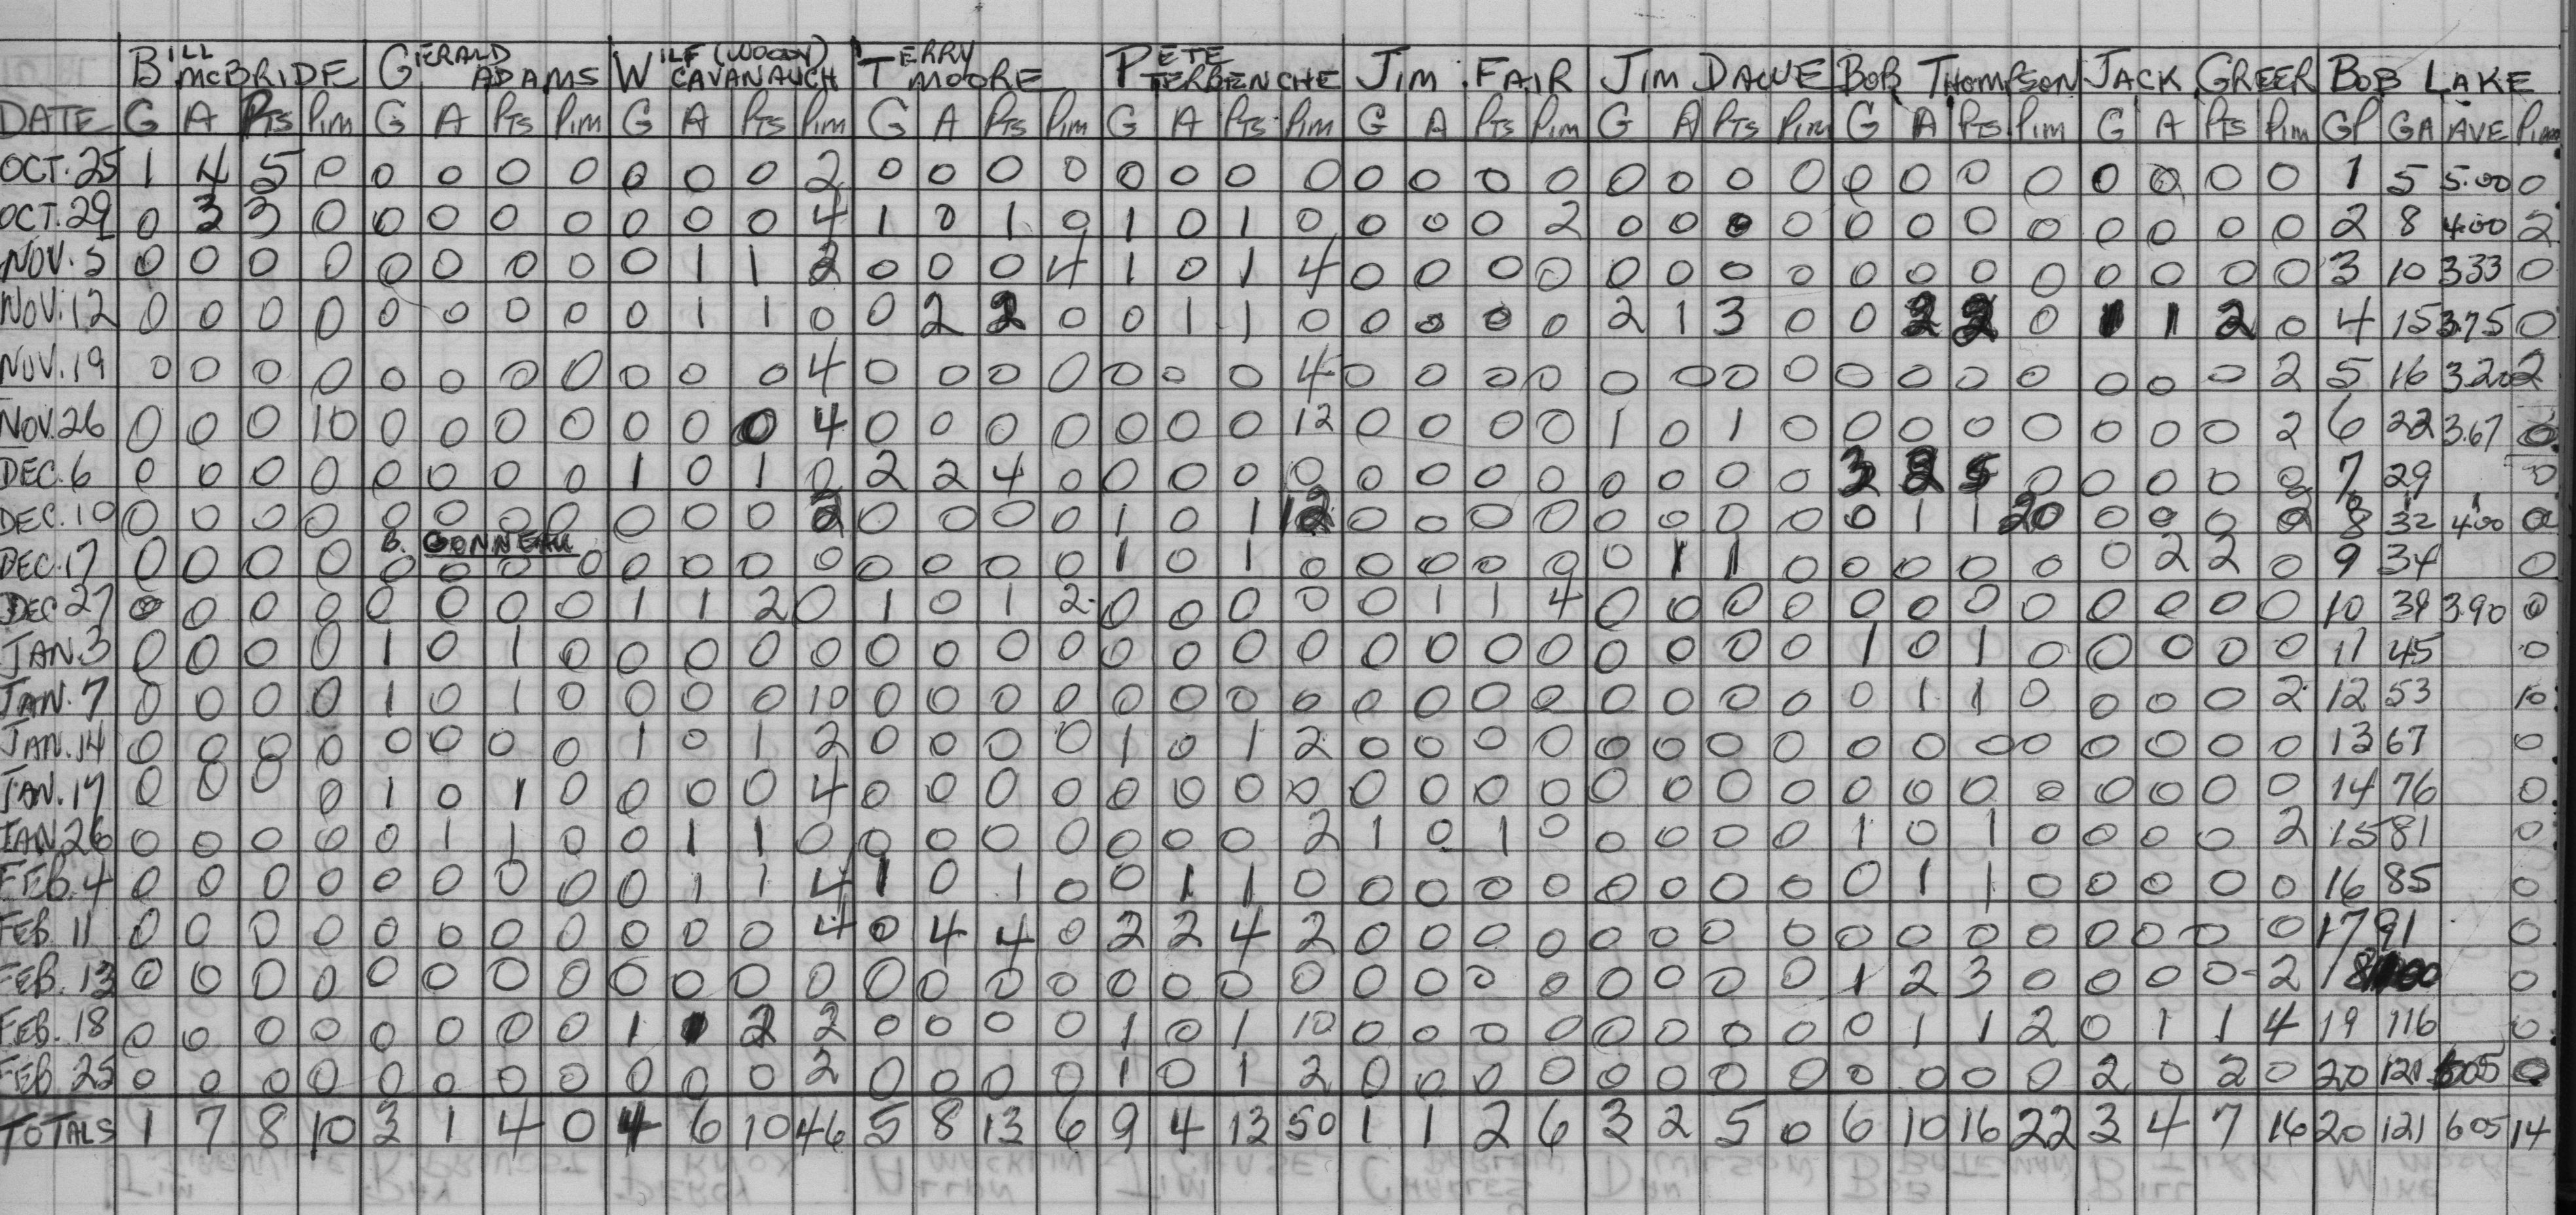 BILL McBRIDE GERALD ADAMS WILF (WOODY) CAVANAUGH TERRY MOORE PETE TERBENCHE JIM FAIR JIM DAWE BOB THOMPSON JACK GREER BOB LAKE
DATE G A PTS PIM G A PTS PIM G A PTS PIM G A PTS PIM G A PTS PIM G A PTS PIM G A PTS PIM G A PTS PIM G A PTS PIM GP GA AVE PIM
OCT. 25 1 4 5 0 0 0 0 0 0 0 0 2 0 0 0 0 0 0 0 0 0 0 0 0 0 0 0 0 0 0 0 0 0 0 0 0 1 5 5.00 0
OCT. 29 0 3 3 0 0 0 0 0 0 0 0 4 1 0 1 0 1 0 1 0 0 0 0 2 0 0 0 0 0 0 0 0 0 0 0 0 2 8 4.00 2
NOV. 5 0 0 0 0 0 0 0 0 0 1 1 2 0 0 0 4 1 0 1 4 0 0 0 0 0 0 0 0 0 0 0 0 0 0 0 0 3 10 3.33 0
NOV. 12 0 0 0 0 0 0 0 0 0 1 1 0 0 2 2 0 0 1 1 0 0 0 0 0 2 1 3 0 0 2 2 0 1 1 2 0 4 15 3.75 0
NOV. 19 0 0 0 0 0 0 0 0 0 0 0 4 0 0 0 0 0 0 0 4 0 0 0 0 0 0 0 0 0 0 0 0 0 0 0 2 5 16 3.20 2
NOV. 26 0 0 0 10 0 0 0 0 0 0 0 4 0 0 0 0 0 0 0 12 0 0 0 0 1 0 1 0 0 0 0 0 0 0 0 2 6 22 3.67 0
DEC. 6 0 0 0 0 0 0 0 0 1 0 1 0 2 2 4 0 0 0 0 0 0 0 0 0 0 0 0 0 3 2 5 0 0 0 0 0 7 29 0
DEC. 10 0 0 0 0 0 0 0 0 0 0 0 2 0 0 0 0 1 0 1 12 0 0 0 0 0 0 0 0 0 1 1 20 0 0 0 2 8 32 4.00 0
B. GONNEAU
DEC. 17 0 0 0 0 0 0 0 0 0 0 0 0 0 0 0 0 1 0 1 0 0 0 0 0 0 1 1 0 0 0 0 0 0 2 2 0 9 34 0
DEC 27 0 0 0 0 0 0 0 0 1 1 2 0 1 0 1 2 0 0 0 0 0 1 1 4 0 0 0 0 0 0 0 0 0 0 0 0 10 39 3.90 0
JAN. 3 0 0 0 0 1 0 1 0 0 0 0 0 0 0 0 0 0 0 0 0 0 0 0 0 0 0 0 0 1 0 1 0 0 0 0 0 11 45 0
JAN. 7 0 0 0 0 1 0 1 0 0 0 0 10 0 0 0 0 0 0 0 0 0 0 0 0 0 0 0 0 0 1 1 0 0 0 0 2 12 53 10
JAN. 14 0 0 0 0 0 0 0 0 1 0 1 2 0 0 0 0 1 0 1 2 0 0 0 0 0 0 0 0 0 0 0 0 0 0 0 0 13 67 0
JAN. 17 0 0 0 0 1 0 1 0 0 0 0 4 0 0 0 0 0 0 0 0 0 0 0 0 0 0 0 0 0 0 0 0 0 0 0 0 14 76 0
JAN. 26 0 0 0 0 0 1 1 0 0 1 1 0 0 0 0 0 0 0 0 2 1 0 1 0 0 0 0 0 1 0 1 0 0 0 0 2 15 81 0
FEB. 4 0 0 0 0 0 0 0 0 0 1 1 4 1 0 1 0 0 1 1 0 0 0 0 0 0 0 0 0 0 1 1 0 0 0 0 0 16 85 0
FEB. 11 0 0 0 0 0 0 0 0 0 0 0 4 0 4 4 0 2 2 4 2 0 0 0 0 0 0 0 0 0 0 0 0 0 0 0 0 17 91 0
FEB. 13 0 0 0 0 0 0 0 0 0 0 0 0 0 0 0 0 0 0 0 0 0 0 0 0 0 0 0 0 1 2 3 0 0 0 0 2 18 100 0
FEB. 18 0 0 0 0 0 0 0 0 1 1 2 2 0 0 0 0 1 0 1 10 0 0 0 0 0 0 0 0 0 1 1 2 0 1 1 4 19 116 0
FEB. 25 0 0 0 0 0 0 0 0 0 0 0 2 0 0 0 0 1 0 1 2 0 0 0 0 0 0 0 0 0 0 0 0 2 0 2 0 20 121 6.05 0
TOTALS 1 7 8 10 3 1 4 0 4 6 10 46 5 8 13 6 9 4 13 50 1 1 2 6 3 2 5 0 6 10 16 22 3 4 7 16 20 121 6.05 14